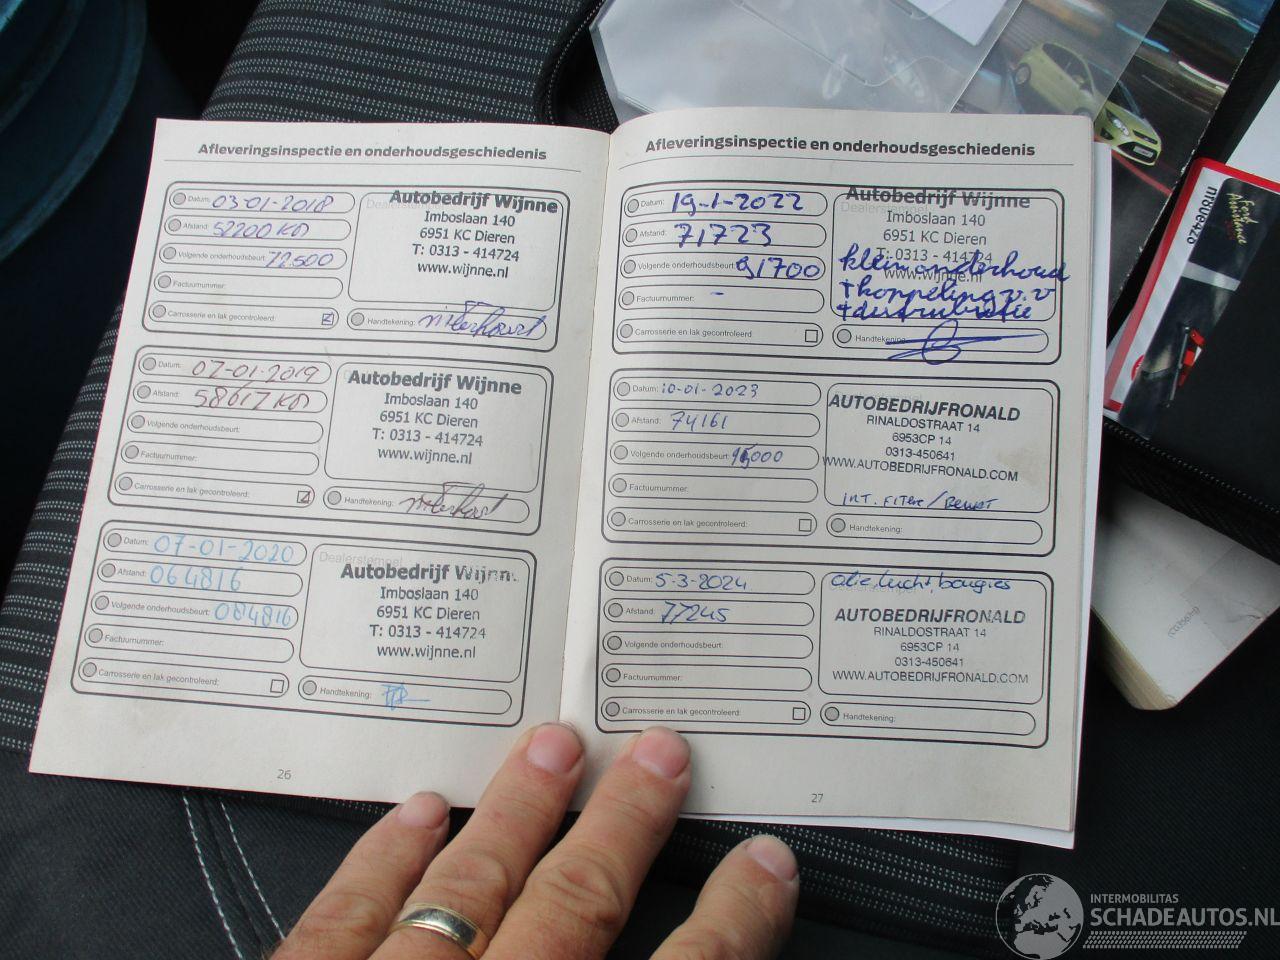 Afleveringsinspectie en onderhoudsgeschiedenis
Datum: 03-01-2018
Afstand: 52200 KM
Volgende onderhoudsbeurt: 72.500
Factuurnummer:
Carrosserie en lak gecontroleerd:
Autobedrijf Wijnne
Imboslaan 140
6951 KC Dieren
T: 0313 - 414724
www.wijnne.nl
Handtekening:
Datum: 07-01-2019
Afstand: 58617 KM
Volgende onderhoudsbeurt:
Factuurnummer:
Carrosserie en lak gecontroleerd:
Autobedrijf Wijnne
Imboslaan 140
6951 KC Dieren
T: 0313 - 414724
www.wijnne.nl
Handtekening:
Datum: 07-01-2020
Afstand: 064816
Volgende onderhoudsbeurt: 084816
Factuurnummer:
Carrosserie en lak gecontroleerd:
Dealerstempel
Autobedrijf Wijnn
Imboslaan 140
6951 KC Dieren
T: 0313 - 414724
www.wijnne.nl
Handtekening:
26
Afleveringsinspectie en onderhoudsgeschiedenis
Datum: 19-1-2022
Afstand: 71723
Volgende onderhoudsbeurt: 91700
Factuurnummer: -
Carrosserie en lak gecontroleerd
Autobedrijf Wijnne
Dealerstempel
Imboslaan 140
6951 KC Dieren
T: 0313 - 414724
www.wijnne.nl
klein onderhoud
+ koppeling v.v
+ distributie
Handtekening:
Datum: 10-01-2023
Afstand: 74161
Volgende onderhoudsbeurt:
Factuurnummer:
Carrosserie en lak gecontroleerd:
AUTOBEDRIJFRONALD
RINALDOSTRAAT 14
6953CP 14
0313-450641
WWW.AUTOBEDRIJFRONALD.COM
INT. FILTER / BEURT
Handtekening:
Datum: 5-3-2024
Afstand: 77245
Volgende onderhoudsbeurt:
Factuurnummer:
Carrosserie en lak gecontroleerd:
olie, lucht, bougies
AUTOBEDRIJFRONALD
RINALDOSTRAAT 14
6953CP 14
0313-450641
WWW.AUTOBEDRIJFRONALD.COM
Handtekening:
27
INTERMOBILITAS
SCHADEAUTOS.NL